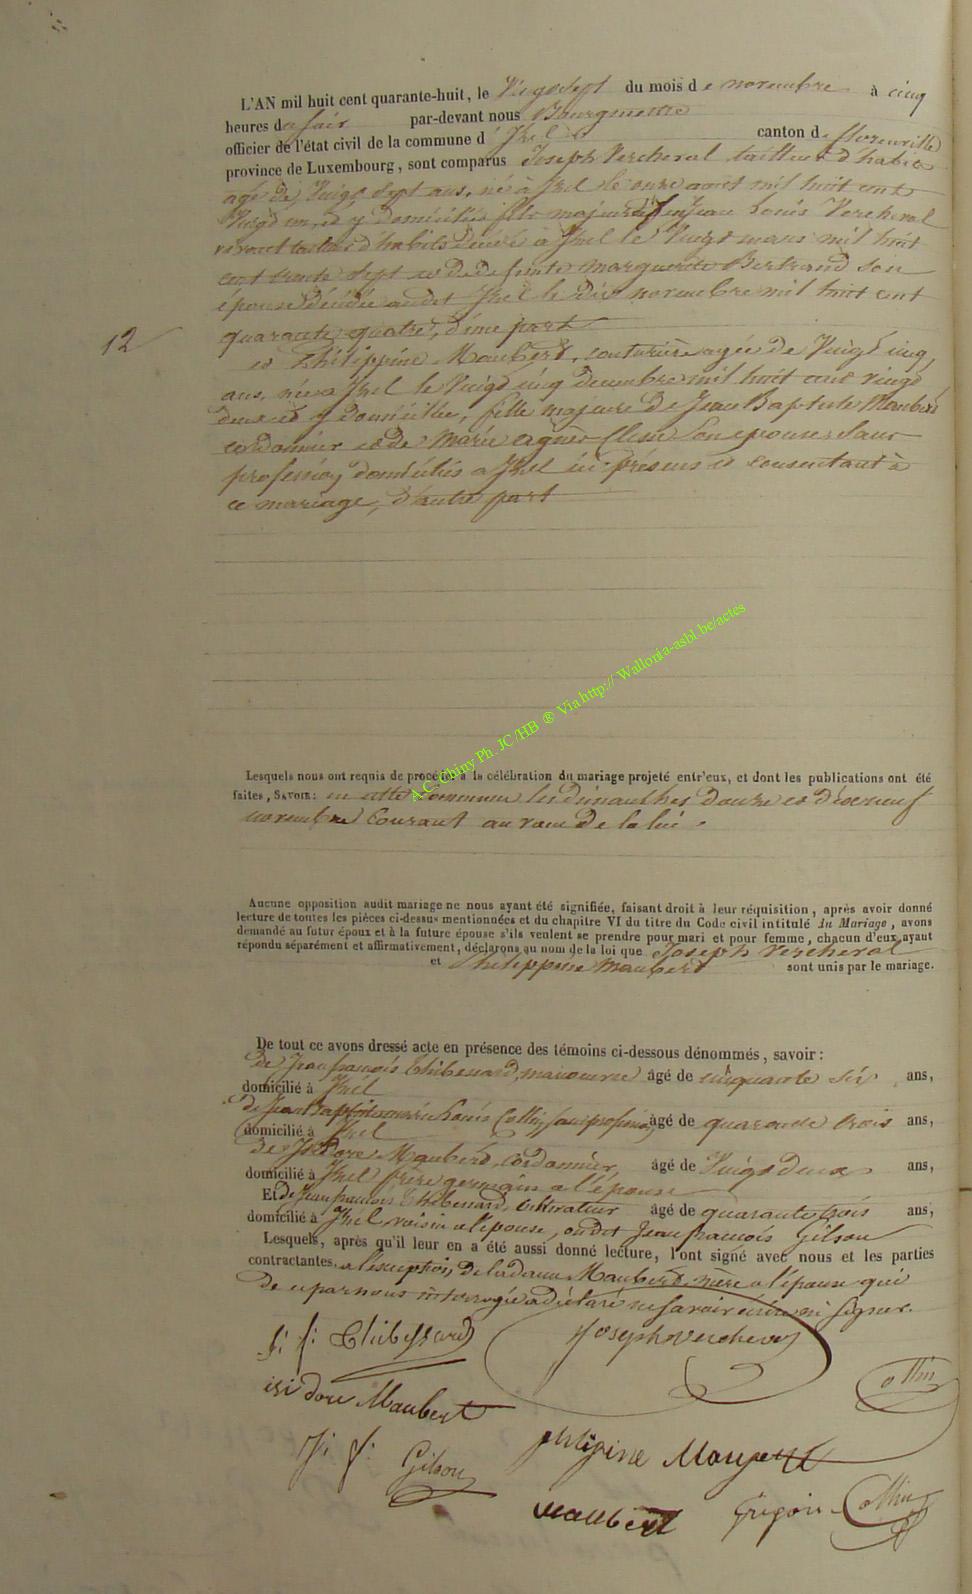 L'AN mil huit cent quarante-huit, le Vingt Sept du mois de novembre à cinq
heures du soir par-devant nous Bourgmestre
officier de l'état civil de la commune d' Izel canton de florenville
province de Luxembourg, sont comparus Joseph Vercheval tailleur d'habits
agé de Vingt Sept ans, né à Izel le onze aout mil huit cent
Vingt un, et y domicilié fils majeur de feu Jean Louis Vercheval
vivant tailleur d'habits décédé à Izel le Vingt mars mil huit
cent trente Sept et de défunte Marguerite Bertrand son
épouse décédée audit Izel le dix novembre mil huit cent
quarante quatre, d'une part
12
et Philippine Maubert, couturière agée de Vingt cinq
ans, née a Izel le Vingt cinq decembre mil huit cent vingt
deux et y domiciliée, fille majeure de Jean Baptiste Maubert
cordonnier et de Marie Agnès Son epouse Sans
profession, domiciliés a Izel ici présens et consentant à
ce mariage, d'autre part
A.C. Chiny Ph. JC/HB ® Via http:// Wallonia-asbl.be/actes
Lesquels nous ont requis de procéder à la célébration du mariage projeté entr'eux, et dont les publications ont été
faites, SAVOIR : en cette commune les dimanches Douze et dixneuf
novembre Courant au vœu de la loi.
Aucune opposition audit mariage ne nous ayant été signifiée, faisant droit à leur réquisition, après avoir donné
lecture de toutes les pièces ci-dessus mentionnées et du chapitre VI du titre du Code civil intitulé du Mariage, avons
demandé au futur époux et à la future épouse s'ils veulent se prendre pour mari et pour femme, chacun d'eux ayant
répondu séparément et affirmativement, déclarons au nom de la loi que Joseph Vercheval
et Philippine Maubert sont unis par le mariage.
De tout ce avons dressé acte en présence des témoins ci-dessous dénommés, savoir :
de Jean françois Thibessard, manœuvre âgé de cinquante six ans,
domicilié à Izel
de Louis Collin, sans profession âgé de quarante trois ans,
domicilié à Izel
de Isidore Maubert, cordonnier, âgé de Vingt deux ans,
domicilié à Izel frère germain a l'épouse
Et de Jean françois Thibessard, cultivateur âgé de quarante trois ans,
domicilié à Izel, voisin a l'épouse, ou dit Jean françois Gilson
Lesquels, après qu'il leur en a été aussi donné lecture, l'ont signé avec nous et les parties
contractantes. a l'exception, de la dame Maubert mère a l'épouse qui
de ce par nous interrogée a déclaré ne savoir écrire ni Signer.
j. f. Thibessard Joseph Vercheval
isidore Maubert Collin
J. f. Gilson
philipine Maupert
Maubert Grégoire Collin